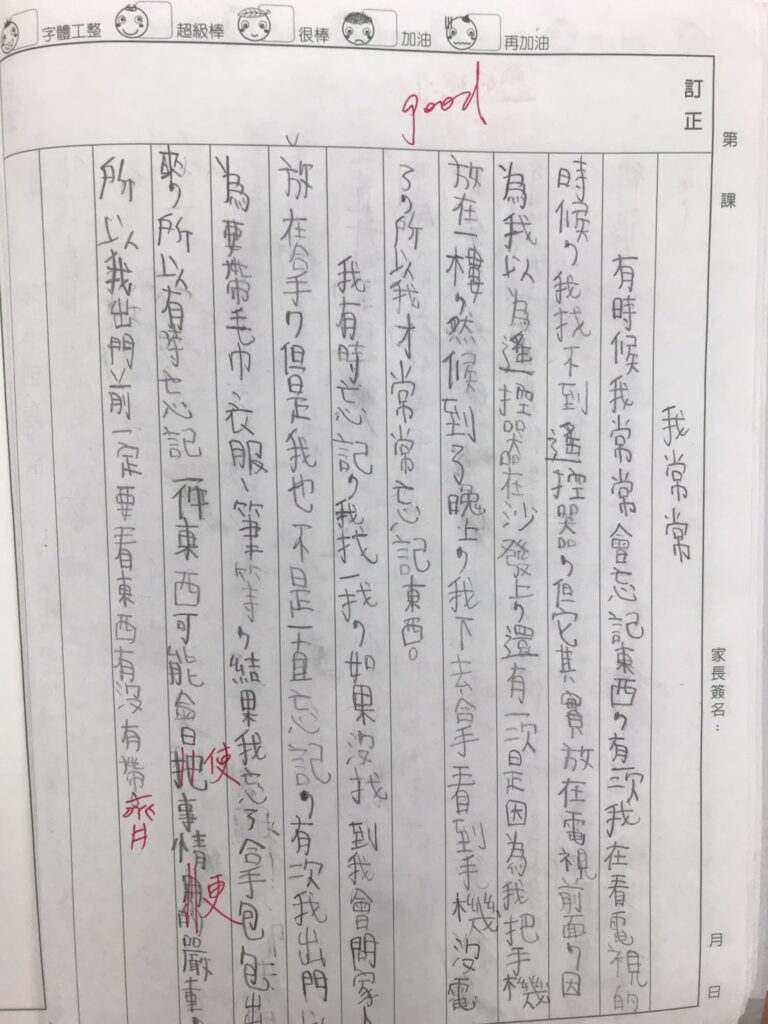 字體工整 超級棒 很棒 加油 再加油
第 課
家長簽名：
月 日
訂正
good
我常常
有時候我常常會忘記東西，有一次我在看電視的
時候，我找不到遙控器，但它其實放在電視前面，因
為我以為遙控器在沙發上，還有一次是因為我把手機
放在一樓，然候到了晚上，我下去拿手看到手機沒電
了，所以我才常常忘記東西。
我有時忘記，我找一找，如果沒找到我會問家人
放在拿手，但是我也不是一直忘記，有次我出門
為要帶毛巾、衣服、筆等，結果我忘了拿手包包出
來，所以有等忘記一件東西可能會把事情 嚴重，
使
更
所以我出門前一定要看東西有沒有帶
齊